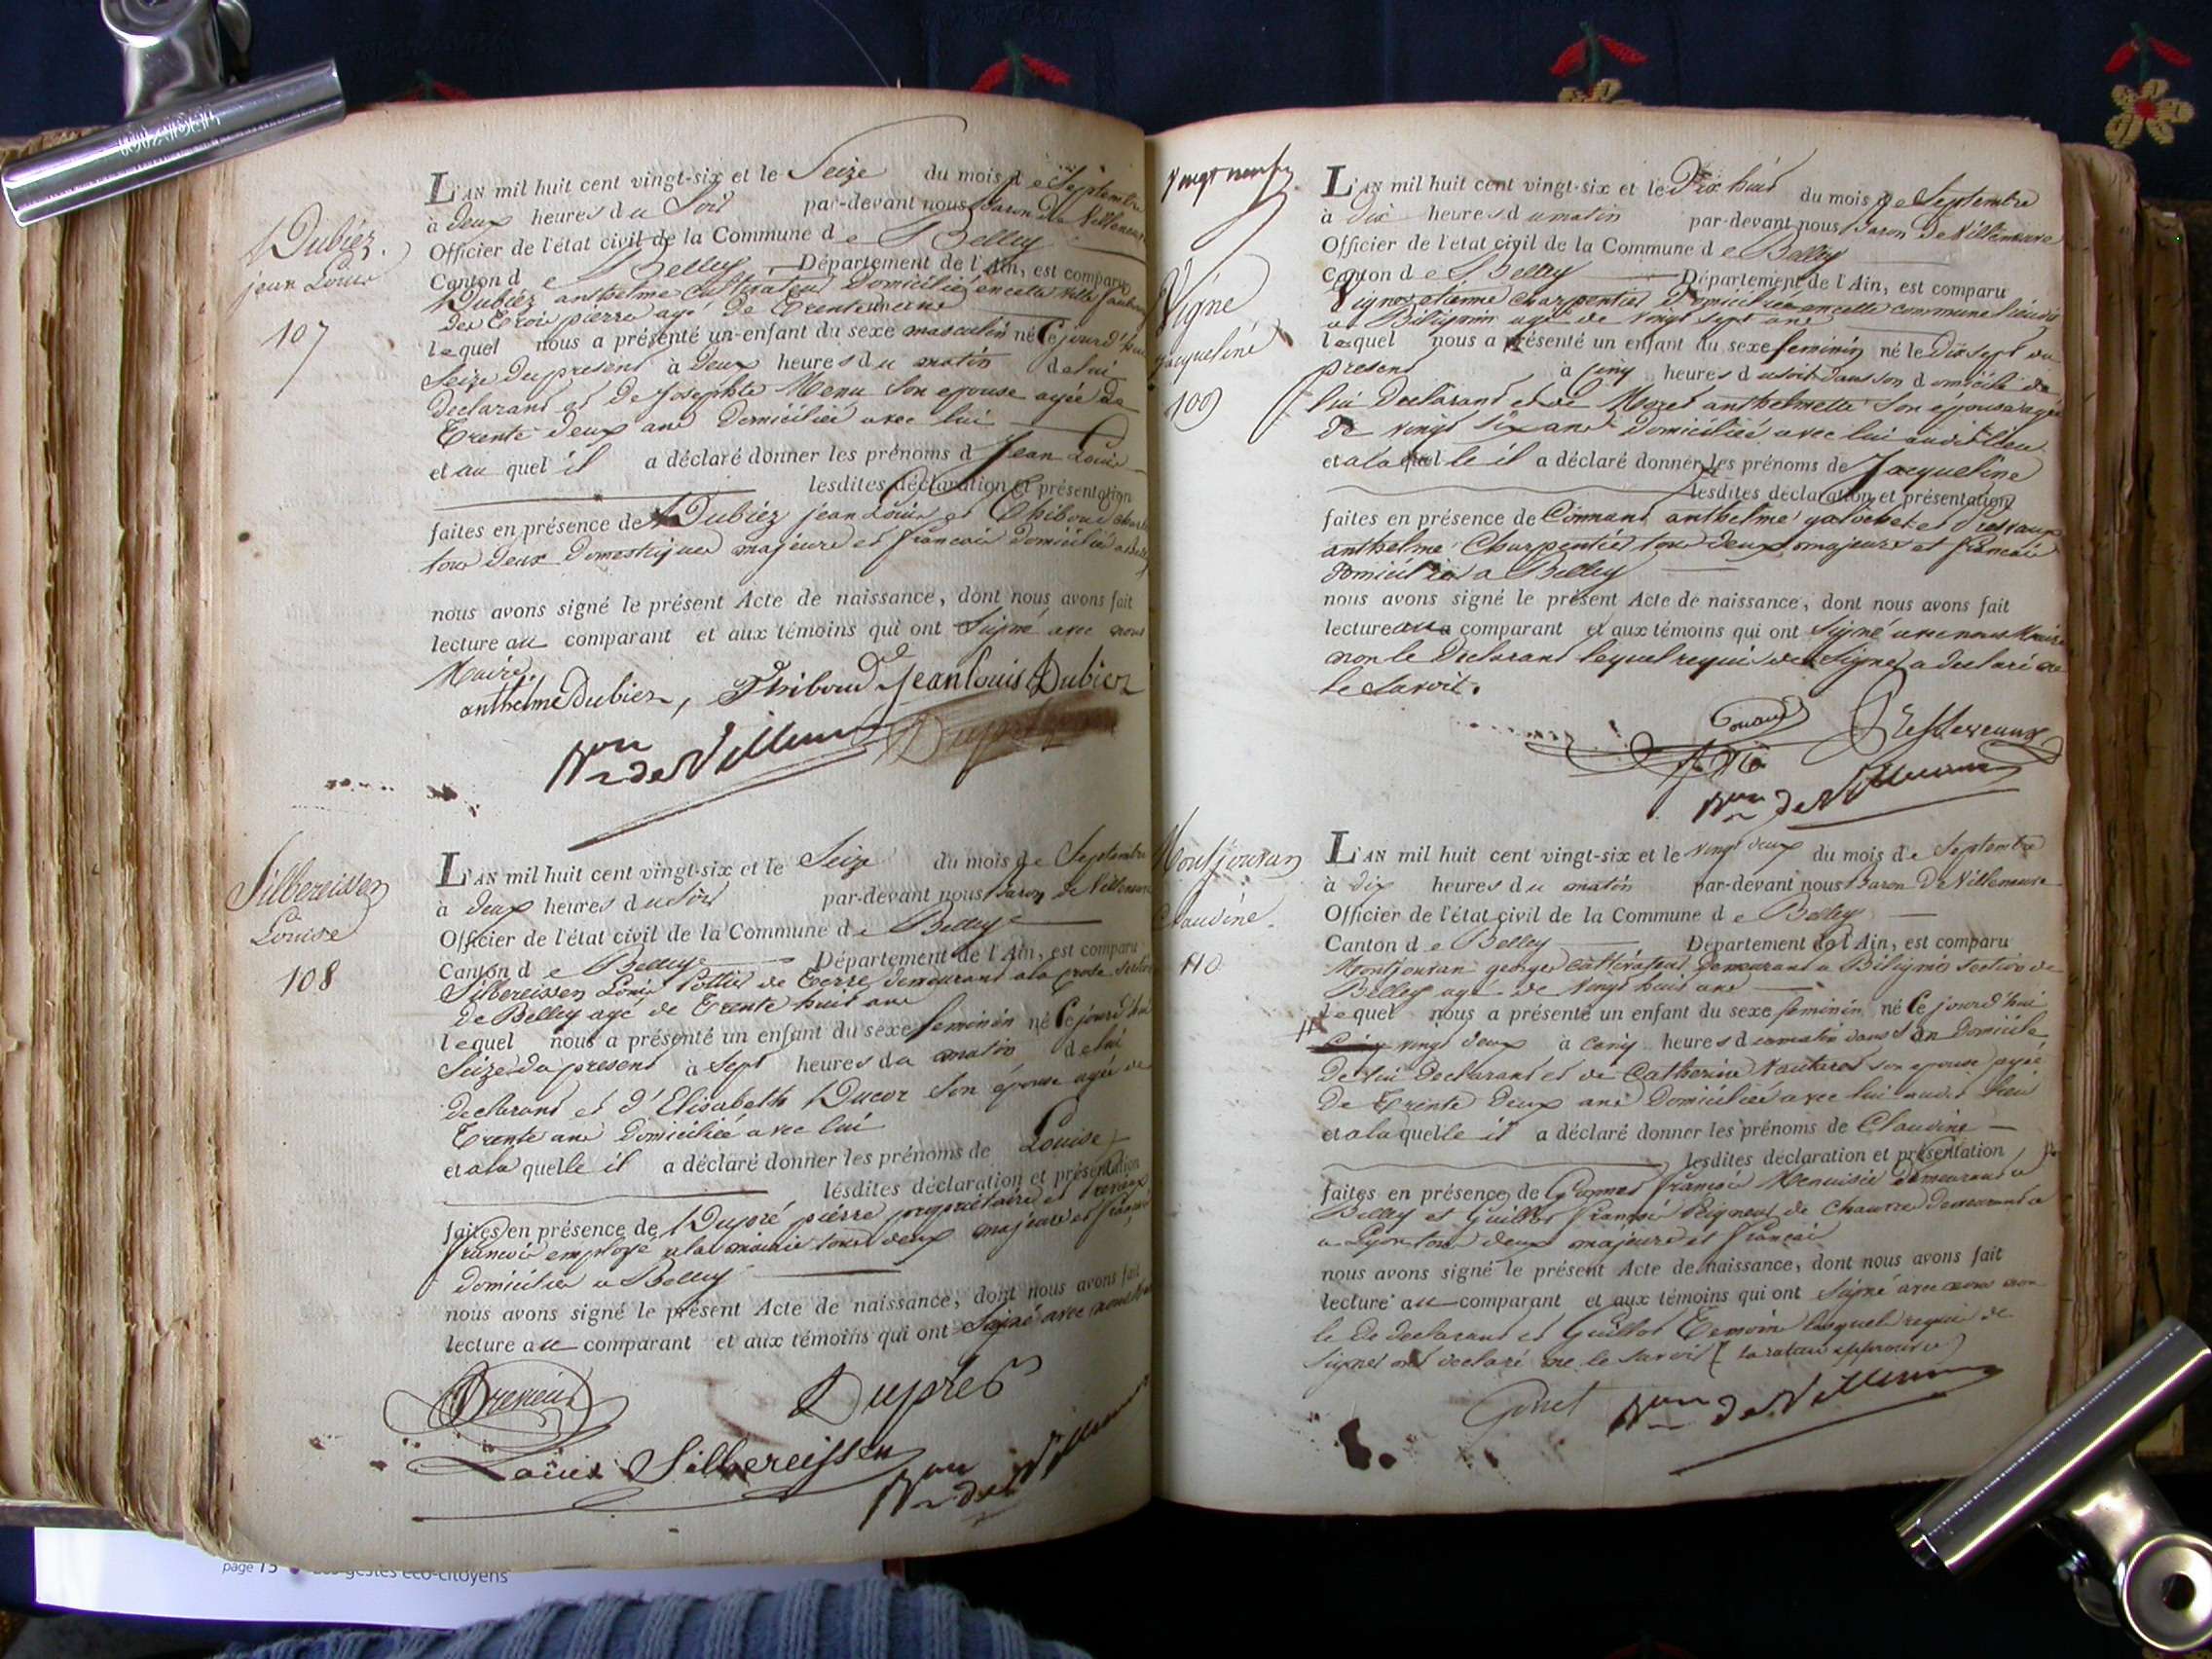 Dubiez
jean Louis
107
L'AN mil huit cent vingt-six et le Seize du mois de Septembre
à deux heures du Soir par-devant nous Baron de Villeneuve
Officier de l'état civil de la Commune de Belley
Canton de Belley Département de l'Ain, est comparu
Dubiez anthelme Cultivateur Domicilié en cette ville faubourg
des Trois pierre agé de Trente
lequel nous a présenté un enfant du sexe masculin né Cejourd'hui
Seize du present à Deux heures du matin de lui
declarant et de Josephte Menu Son epouse agée de
Trente deux ans Domiciliée avec lui
et au quel il a déclaré donner les prénoms d Jean Louis
lesdites déclaration et présentation
faites en présence de Dubiez jean Louis et Thiboud
tous deux Domestiques majeurs et francais domicilié a
nous avons signé le présent Acte de naissance, dont nous avons fait
lecture au comparant et aux témoins qui ont Signé avec nous
Maire
anthelme Dubiez, Thiboud Jean Louis Dubiez
Bon de Villeneuve
Silbereissen
Louise
108
L'AN mil huit cent vingt-six et le Seize du mois de Septembre
à deux heures du Soir par-devant nous Baron de Villeneuve
Officier de l'état civil de la Commune de Belley
Canton de Belley Département de l'Ain, est comparu
Silbereissen Louis Pottier de Terre demeurant a la
de Belley agé de Trente huit ans
lequel nous a présenté un enfant du sexe feminin né Cejourd'hui
Seize du present à Sept heures du matin de lui
declarant et d'Elisabeth Ducor Son épouse agée de
Trente ans Domiciliée avec lui
et a la quelle il a déclaré donner les prénoms de Louise
lesdites déclaration et présentation
faites en présence de Dupré pierre proprietaire et
francois employé a la mairie tous deux majeurs et francais
domicilié a Belley
nous avons signé le présent Acte de naissance, dont nous avons fait
lecture au comparant et aux témoins qui ont Signé avec nous
Dupré
Louis Silbereissen
Bon de Villeneuve
Vingt neuf
Vigne
jacqueline
109
L'AN mil huit cent vingt-six et le Dix huit du mois de Septembre
à dix heures du matin par-devant nous Baron De Villeneuve
Officier de l'état civil de la Commune de Belley
Canton de Belley Département de l'Ain, est comparu
Vigne etienne charpentier Domicilié en cette commune lieudit
a Bilignin agé de vingt sept ans
lequel nous a présenté un enfant du sexe feminin né le Dix sept du
present à cinq heures du soir dans son domicile de
lui Declarant et de Moret anthelmette Son épouse agée
De vingt Six ans Domiciliée avec lui audit lieu
et a la quelle il a déclaré donner les prénoms de Jacqueline
lesdites déclaration et présentation
faites en présence de Connand anthelme
anthelme Charpentier tous deux majeurs et francais
Domicilié a Belley
nous avons signé le présent Acte de naissance, dont nous avons fait
lecture au comparant et aux témoins qui ont Signé avec nous Maire
non le Declarant lequel requis de Signer a declaré ne
le Savoir.
Bon de Villeneuve
Montjouvan
Claudine
110
L'AN mil huit cent vingt-six et le vingt deux du mois de Septembre
à dix heures du matin par-devant nous Baron De Villeneuve
Officier de l'état civil de la Commune de Belley
Canton de Belley Département de l'Ain, est comparu
Montjouvan george Cultivateur Demeurant a Bilignin section de
Belley agé de vingt huit ans
lequel nous a présenté un enfant du sexe feminin né Ce jourd'hui
vingt deux à cinq heures du matin dans son Domicile
De lui Declarant et de Catherine Son epouse agée
De Trente Deux ans Domiciliée avec lui audit lieu
et a la quelle il a déclaré donner les prénoms de Claudine
lesdites déclaration et présentation
faites en présence de francois Menuisier demeurant a
Belley et Guillot francois Peigneur de Chanvre demeurant
a Lyon tous deux majeurs et francais
nous avons signé le présent Acte de naissance, dont nous avons fait
lecture au comparant et aux témoins qui ont Signé avec nous non
le De declarant et Guillot Temoin lesquels requis de
signer ont declaré ne le Savoir (la rature approuvée)
Bon de Villeneuve
page 15 Les gestes éco-citoyens